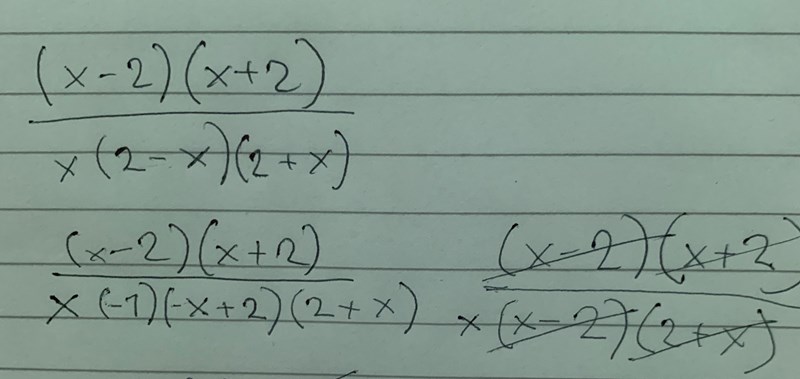 (x-2)(x+2)
x(2-x)(2+x)
(x-2)(x+2) (x-2)(x+2)
x(-1)(-x+2)(2+x) x(x-2)(2+x)